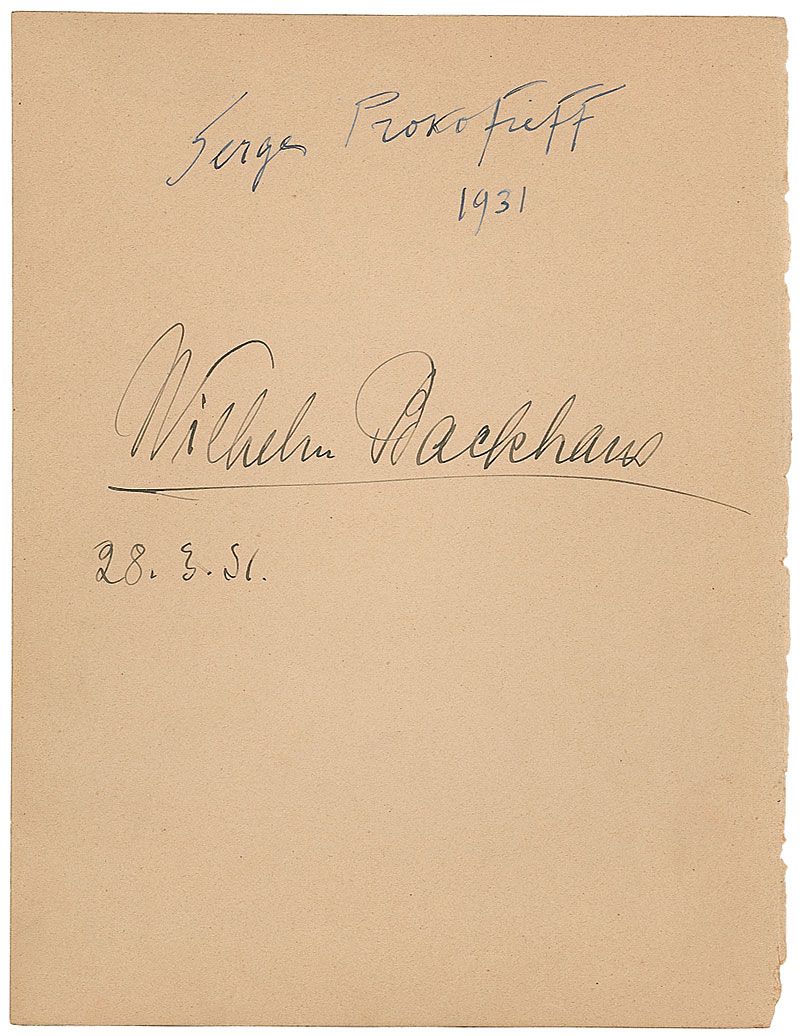 Serge Prokofieff
1931
Wilhelm Backhaus
28. 3. 31.